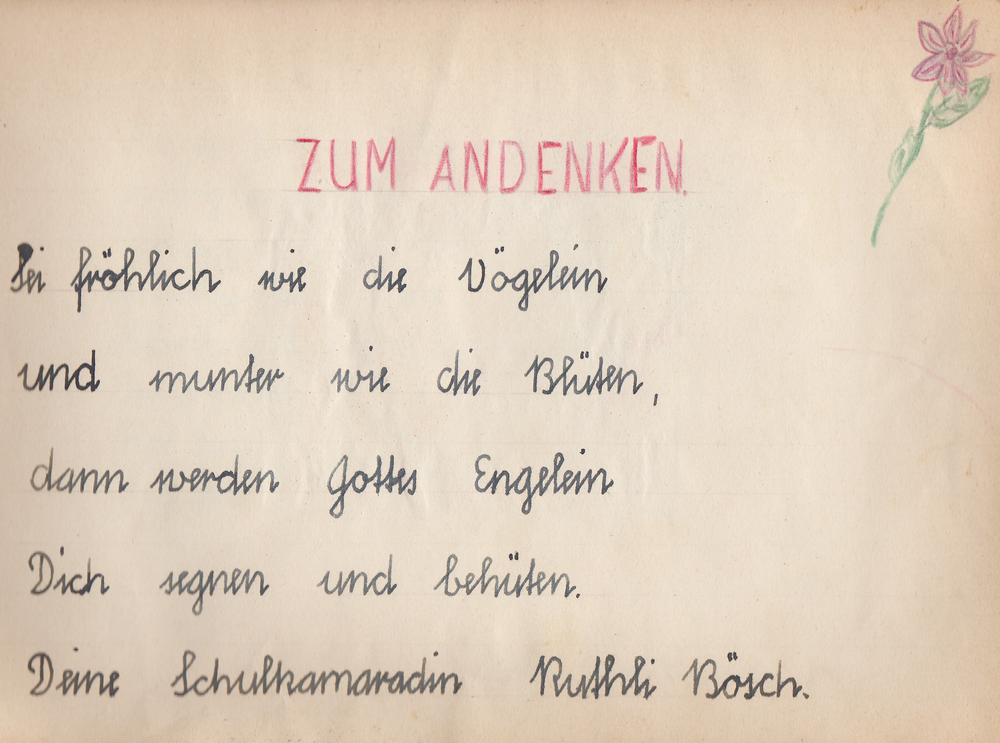 ZUM ANDENKEN.
Sei fröhlich wie die Vögelein
und munter wie die Blüten,
dann werden Gottes Engelein
Dich segnen und behüten.
Deine Schulkamaradin Ruthli Bösch.